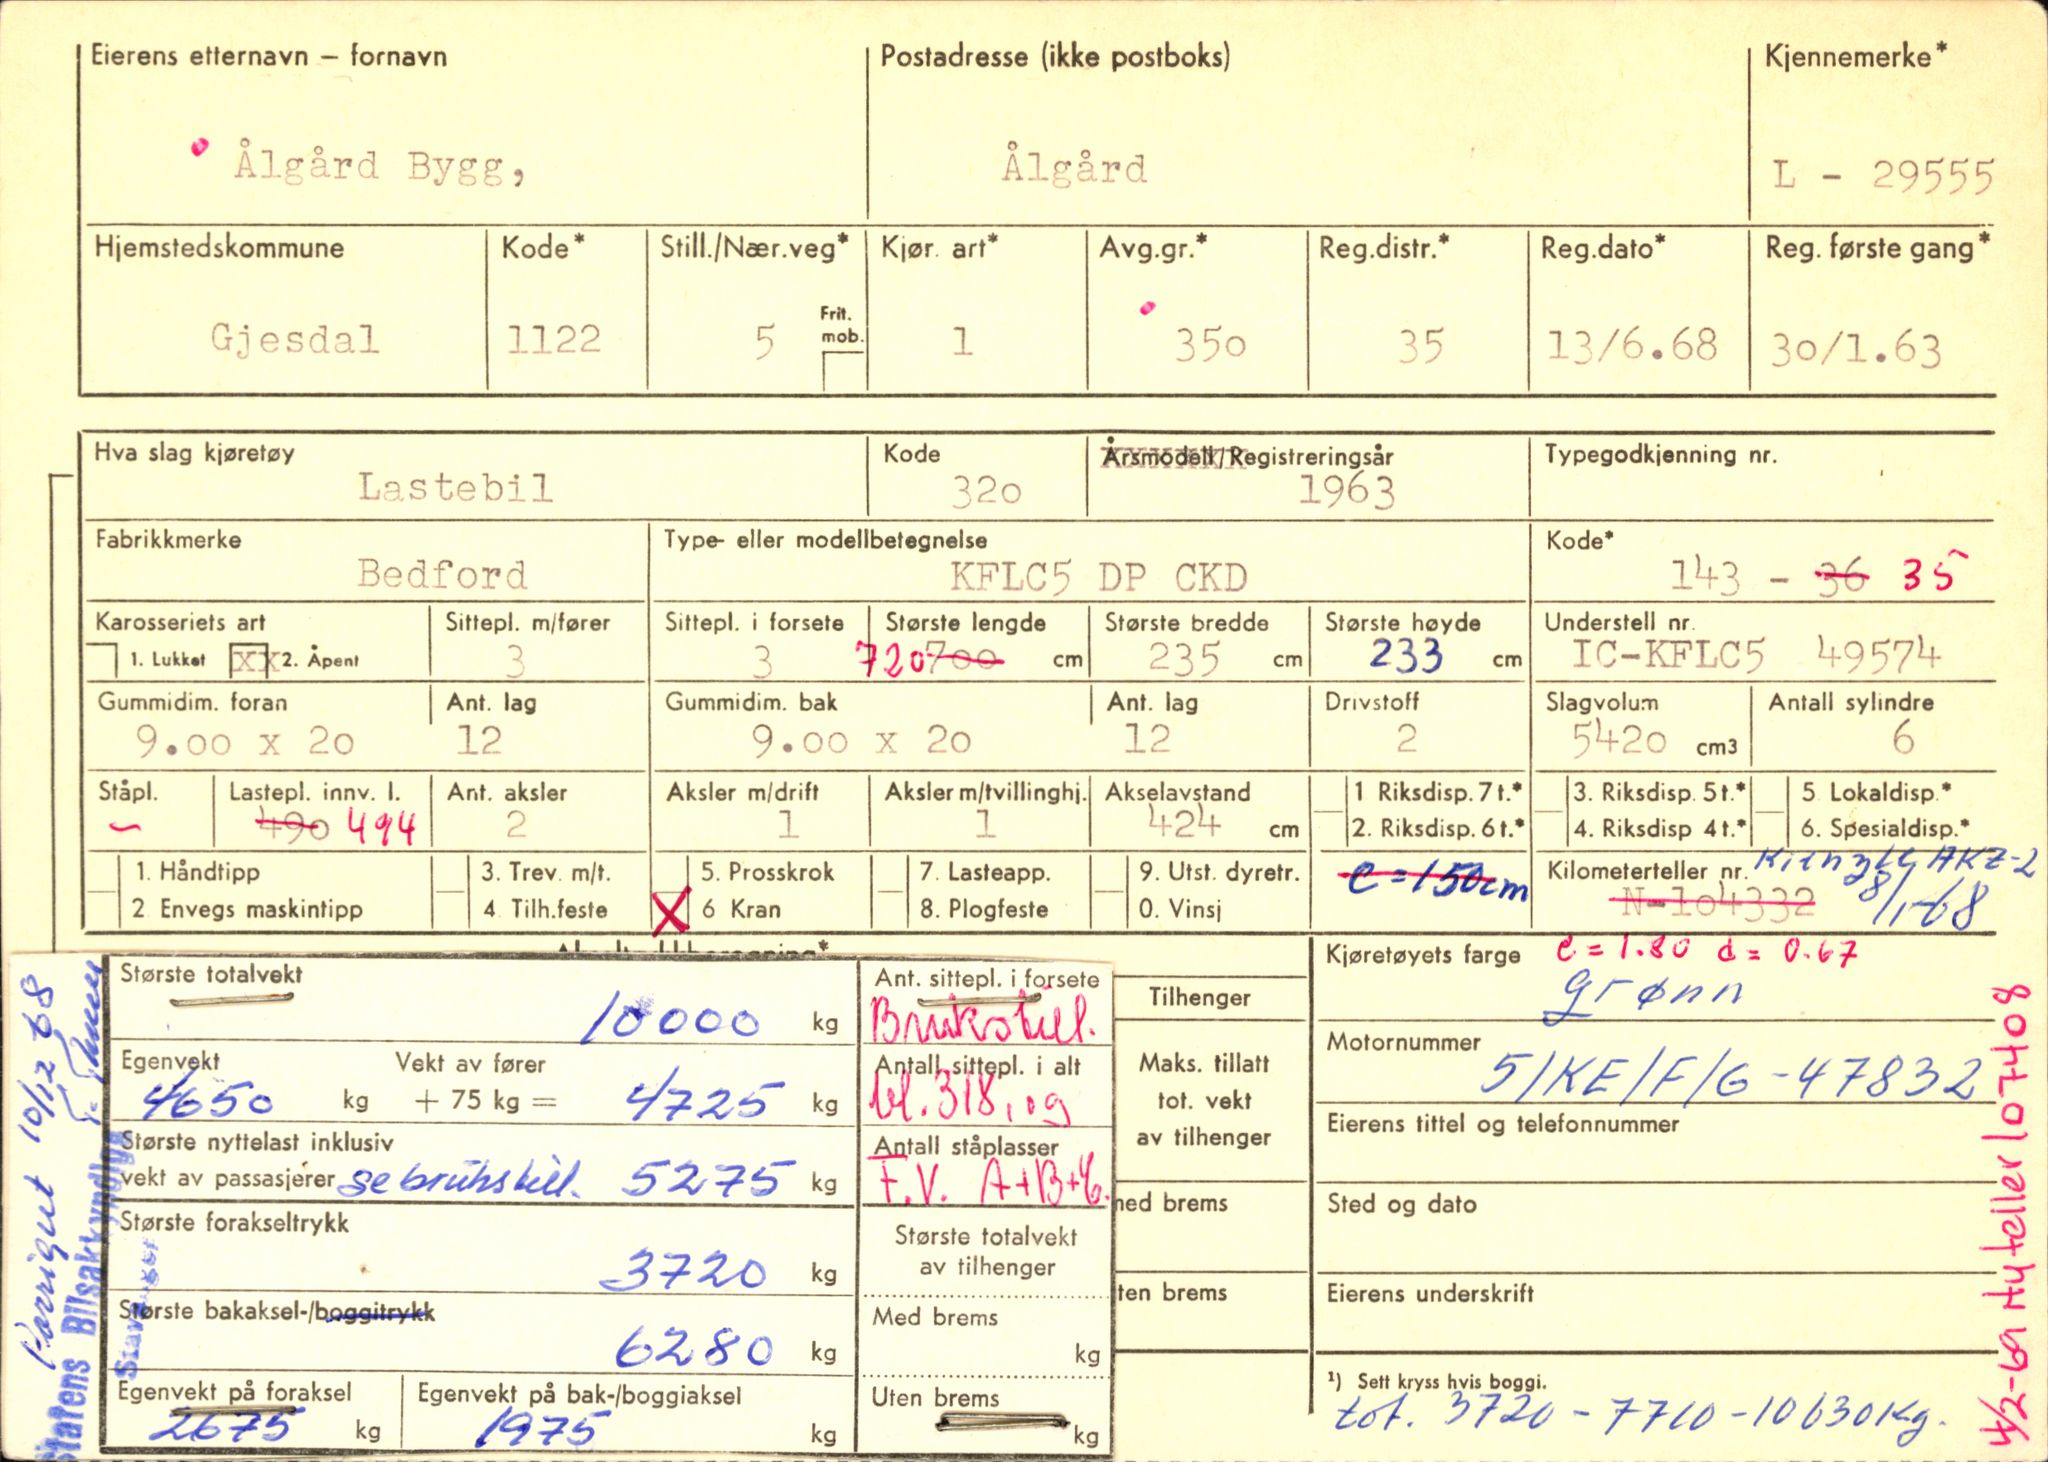 Eierens etternavn – fornavn
Postadresse (ikke postboks)
Kjennemerke*
Ålgård Bygg,
Ålgård
L - 29555
Hjemstedskommune
Kode*
Still./Nær.veg*
Kjør. art*
Avg.gr.*
Reg.distr.*
Reg.dato*
Reg. første gang*
Gjesdal
1122
5
Frit. mob.
1
350
35
13/6.68
30/1.63
Hva slag kjøretøy
Kode
Årsmodell/Registreringsår
Typegodkjenning nr.
Lastebil
320
1963
Fabrikkmerke
Type- eller modellbetegnelse
Kode*
Bedford
KFLC5 DP CKD
143 - 36 35
Karosseriets art
Sittepl. m/fører
Sittepl. i forsete
Største lengde
Største bredde
Største høyde
Understell nr.
1. Lukket xx 2. Åpent
3
3
720 700 cm
235 cm
233 cm
IC-KFLC5 49574
Gummidim. foran
Ant. lag
Gummidim. bak
Ant. lag
Drivstoff
Slagvolum
Antall sylindre
9.00 x 20
12
9.00 x 20
12
2
5420 cm3
6
Ståpl.
Lastepl. innv. l.
Ant. aksler
Aksler m/drift
Aksler m/tvillinghj.
Akselavstand
1 Riksdisp. 7 t.*
3. Riksdisp. 5 t.*
5 Lokaldisp.*
–
490 494
2
1
1
424 cm
2. Riksdisp. 6 t.*
4. Riksdisp 4 t.*
6. Spesialdisp.*
1. Håndtipp
3. Trev. m/t.
5. Prosskrok
7. Lasteapp.
9. Utst. dyretr.
e = 150 cm
Kilometerteller nr. Kienzle AKZ-2
2 Envegs maskintipp
4 Tilh.feste
X 6 Kran
8. Plogfeste
0. Vinsj
N-104332 8/1-68
Kjøretøyets farge e = 1.80 d = 0.67
grønn
Største totalvekt
10000 kg
Ant. sittepl. i forsete
Brukstill.
Tilhenger
Egenvekt
Vekt av fører
4650 kg + 75 kg = 4725 kg
Antall sittepl. i alt
bl. 318, og
Maks. tillatt
tot. vekt
av tilhenger
Motornummer
51/KE/F/6-47832
Eierens tittel og telefonnummer
Største nyttelast inklusiv
vekt av passasjerer se brukstill. 5275 kg
Antall ståplasser
F.V. A+B+C.
med brems
Sted og dato
Største forakseltrykk
3720 kg
Største totalvekt
av tilhenger
ten brems
Eierens underskrift
Største bakaksel-/boggitrykk
6280 kg
Med brems
kg
Egenvekt på foraksel
2675 kg
Egenvekt på bak-/boggiaksel
1975 kg
Uten brems
kg
¹) Sett kryss hvis boggi.
tot. 3720 - 7710 - 10630 kg.
Korrigert 10/12 68
Statens Bilsakkyndige
Stavanger
4/2-69 Ny teller 107408